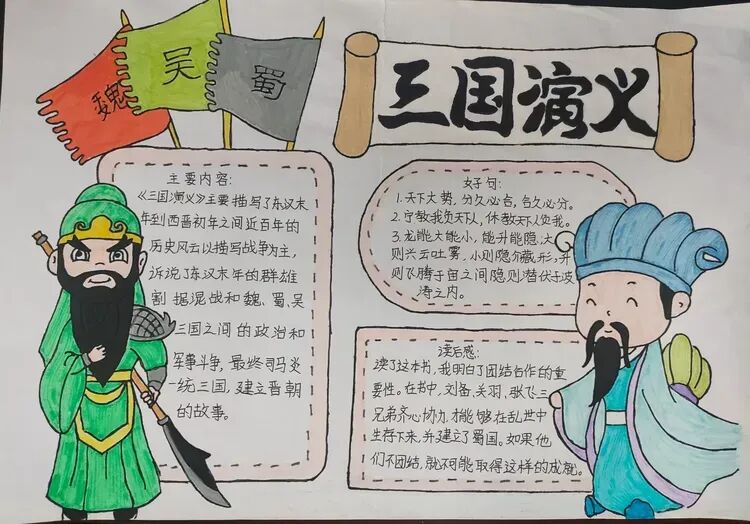 魏
吴
蜀
三国演义
主要内容：
《三国演义》主要描写了东汉末
年到西晋初年之间近百年的
历史风云以描写战争为主，
诉说了东汉末年的群雄
割据混战和魏、蜀、吴
三国之间的政治和
军事斗争，最终司马炎
一统三国，建立晋朝
的故事。
好句：
1.天下大势，分久必合，合久必分。
2.宁教我负天下人，休教天下人负我。
3.龙能大能小，能升能隐，大
则兴云吐雾，小则隐介藏形，升
则飞腾于宙之间隐则潜伏于波
涛之内。
读后感：
读了这本书，我明白了团结合作的重
要性。在书中，刘备、关羽、张飞三
兄弟齐心协力，才能够在乱世中
生存下来，并建立了蜀国。如果他
们不团结，就不可能取得这样的成就。